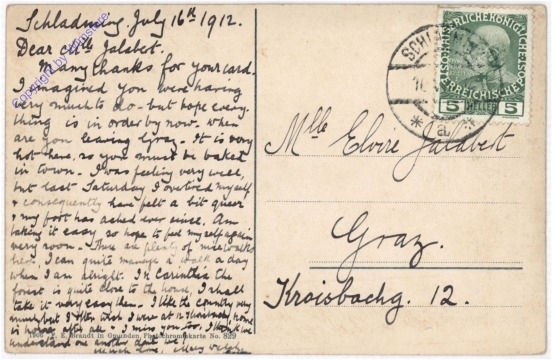 Schladming, July 16th 1912.
Dear Mlle Jalabert.
Many thanks for your card.
I imagined you were having
very much to do - but hope every-
thing is in order by now. When
are you leaving Graz. It is very
hot here, so you must be baked
in town. I was feeling very well,
but last Saturday I overtired myself
& consequently have felt a bit queer
& my foot has ached ever since. Am
taking it easy, so hope to feel myself again
very soon. There are plenty of nice walks
here, I can quite manage a walk a day
when I am alright. In Carinthia the
forest is quite close to the house, I shall
take it very easy then. I like the country very
much, but I often wish I were at 12
home after all - I miss you too, I think we
understand one another, don't we!
Much love, Mary
1908 P. E. Brandt in Gmunden, Photochromiekarte No. 829
Copyright by
SCHLADMING
KAISERLICHEKÖNIGLICHE
ÖSTERREICHISCHE
5 HELLER 5
Mlle Elvire Jalabert
Graz.
Kroisbachg. 12.